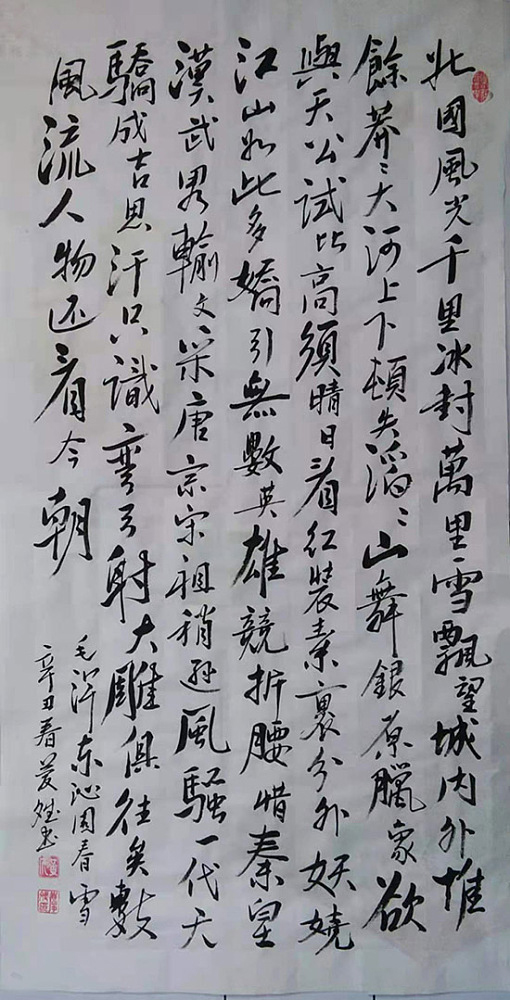 北國風光千里冰封萬里雪飄望城内外惟
餘莽〻大河上下頓失滔〻山舞銀原臘象欲
與天公試比高須晴日看红裝素裹分外妖嬈
江山如此多嬌引無數英雄競折腰惜秦皇
漢武畧輸文采唐宗宋祖稍遜風騷一代天
驕成吉思汗只識彎弓射大雕俱往矣數
風流人物还看今朝
毛泽东沁园春雪
辛丑春书